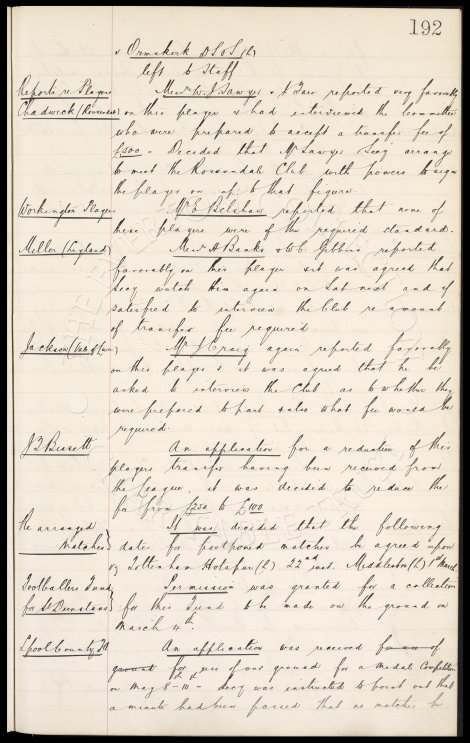 192
& Ormskirk D S of S (h)
left to Staff
Reports re Players Messrs W. J. Sawyer & J Tare reported very favorably
Chadwick (Rossendale) on this player & had interviewed the Committee
who were prepared to accept a transfer fee of
£500 - Decided that Mr Sawyer & Secy arrange
to meet the Rossendale Club with powers to sign
the player on up to that figure.
Workington Players Mr E. Belshaw reported that none of
these players were of the required standard.
Miller (England) Messrs H Banks & W C Gibbins reported
favorably on this player & it was agreed that
Secy watch him again on Sat next and if
satisfied to interview the Club re amount
of transfer fee required.
Jackson Mr J Craig again reported favorably
on this player & it was agreed that he be
asked to interview the Club as to whether they
were prepared to part & also what fee would be
required.
J Q Bissett An application for a reduction of this
players transfer having been received from
the League, it was decided to reduce the
fee from £750 to £100
Re arranged It was decided that the following
matches dates for postponed matches be agreed upon
viz Tottenham Hotspur (h) 22nd inst. Middlesbro (h) 1st March
Footballers Fund Permission was granted for a collection
for St Dunstans for this Fund to be made on the ground on
March 4th.
Lpool County FA An application was received for use of
ground for use of our ground for a medal competition
on May 8th - 10th - Secy was instructed to point out that
a minute had been passed that no matches be